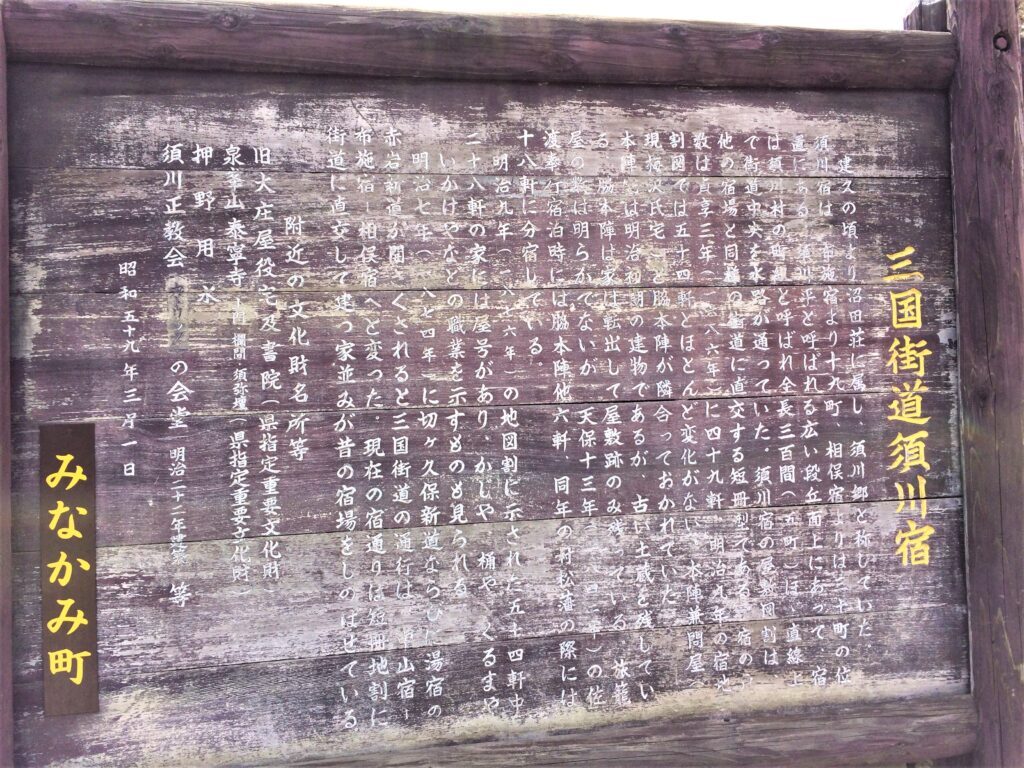 三国街道須川宿
建久の頃より沼田荘に属し、須川郷と称していた。
須川宿は、布施宿より十九町、相俣宿よりは三十町の位
置にある。須川平と呼ばれる広い段丘面上にあって、宿
は須川村の町組と呼ばれ全長三百間（五町）ほゞ直線上
で街道中央を水路が通っていた。須川宿の屋敷図割は、
他の宿場と同様の街道に直交する短冊型である。宿の戸
数は貞享三年（一六八六年）に四十九軒、明治九年の宿地
割図では五十四軒とほとんど変化がない。本陣兼問屋へ
現梅沢氏宅）と脇本陣が隣合っておかれていた。
本陣宅は明治初期の建物であるが、古い土蔵を残してい
る。脇本陣は家は転出して屋敷跡のみ残っている。旅籠
屋の数は明らかでないが、天保十三年（一八四二年）の佐
渡奉行宿泊時には脇本陣他六軒、同年の村松藩の際には
十八軒に分宿している。
明治九年（一八七六年）の地図割に示された五十四軒中
二十八軒の家には屋号があり、かしや、桶や、くるまや
いかけやなどの職業を示すものも見られる。
明治七年（一八七四年）に切ヶ久保新道ならびに湯宿の
赤岩新道が開さくされると三国街道の通行は、中山宿ー
布施宿ー相俣宿へと変った。現在の宿通りは短冊地割に
街道に直交して建つ家並みが昔の宿場をしのばせている
附近の文化財名所等
旧大庄屋役宅及書院（県指定重要文化財）
泉峯山泰寧寺ー山門 欄間 須弥壇ー（県指定重要文化財）
押野用水
須川正教会 の会堂 明治二十二年建築 等
昭和五十九年三月一日
みなかみ町